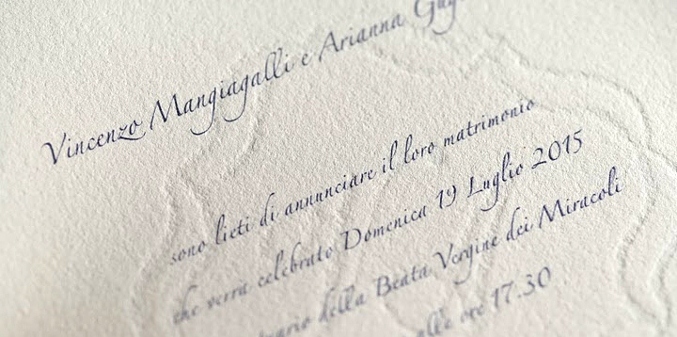 Vincenzo Mangiagalli e Arianna
sono lieti di annunciare il loro matrimonio
che verra celebrato Domenica 19 Luglio 2015
della Beata Vergine dei Miracoli
alle ore 17.30